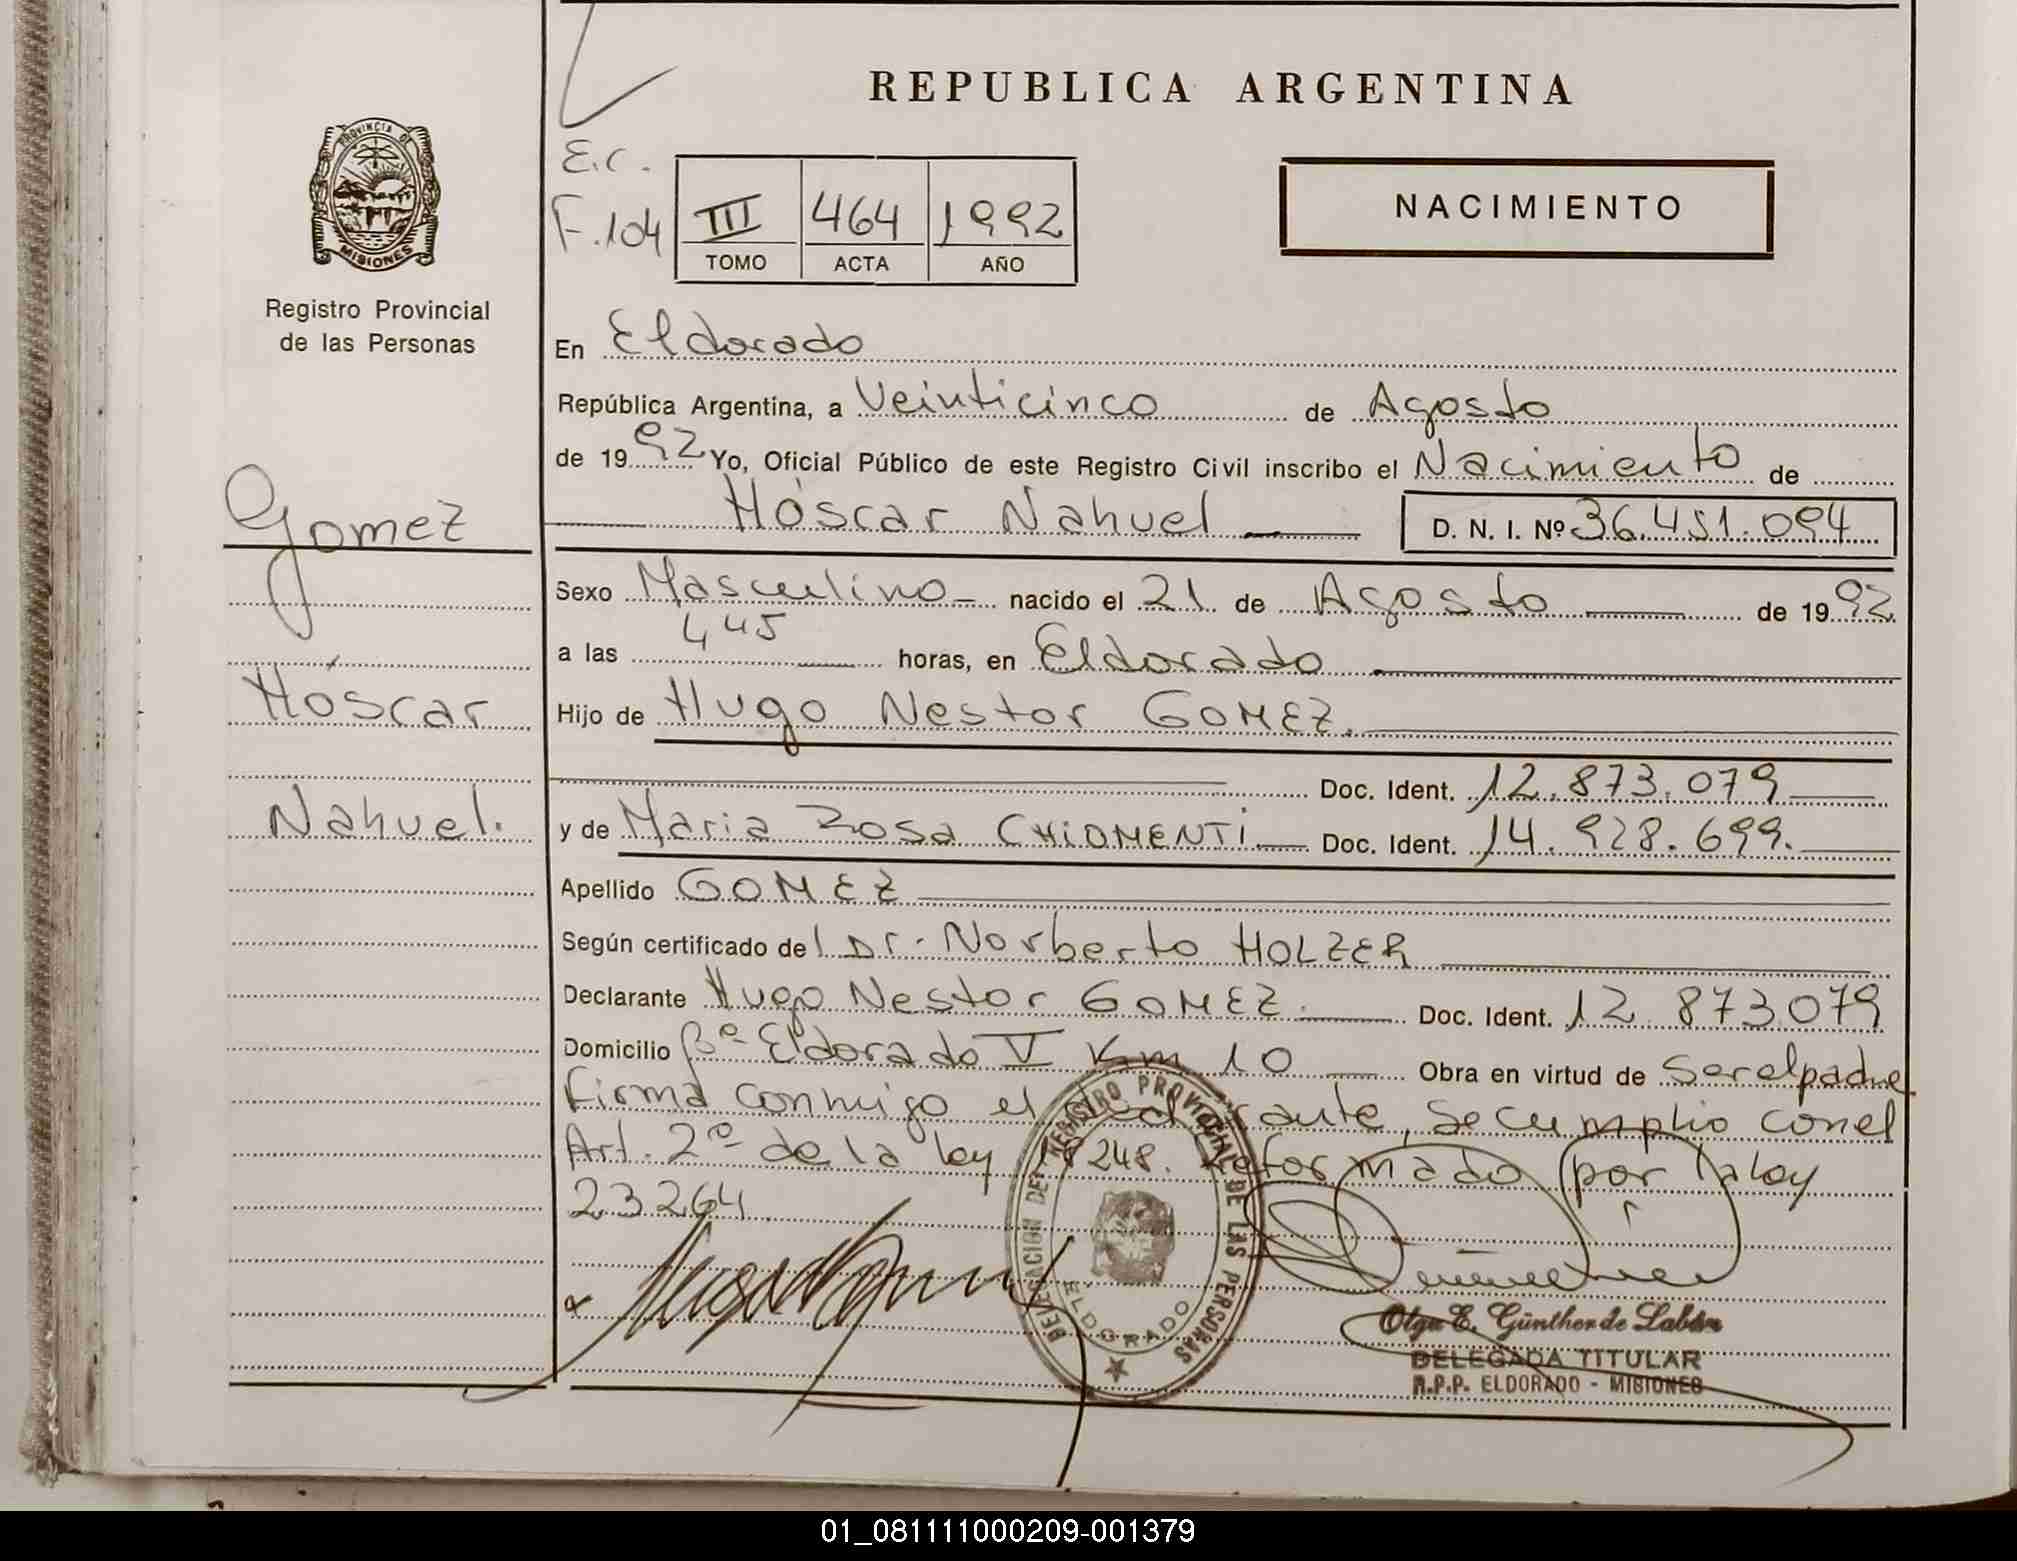 REPUBLICA ARGENTINA
PROVINCIA DE
MISIONES
Registro Provincial
de las Personas
E.C.
F.104
III 464 1992
TOMO ACTA AÑO
NACIMIENTO
En Eldorado
República Argentina, a Veinticinco de Agosto
de 1992 Yo, Oficial Público de este Registro Civil inscribo el Nacimiento de
Hóscar Nahuel D. N. I. Nº 36.451.094
Gomez
Hóscar
Nahuel.
Sexo Masculino nacido el 21 de Agosto de 1992
a las 445 horas, en Eldorado
Hijo de Hugo Nestor GOMEZ.
Doc. Ident. 12.873.079
y de Maria Rosa CHiOMENTi Doc. Ident. 14.928.699.
Apellido GOMEZ
Según certificado del Dr. Norberto HOLZER
Declarante Hugo Nestor GOMEZ. Doc. Ident. 12.873.079
Domicilio Bº Eldorado V Km 10 Obra en virtud de ser el padre
Firma conmigo el declarante, se cumplio con el
Art. 2º de la ley 18248. Reformado por la ley
23264
DELEGACION DEL REGISTRO PROVINCIAL DE LAS PERSONAS
ELDORADO
Olga E. Günther de Labán
DELEGADA TITULAR
R.P.P. ELDORADO - MISIONES
01_081111000209-001379